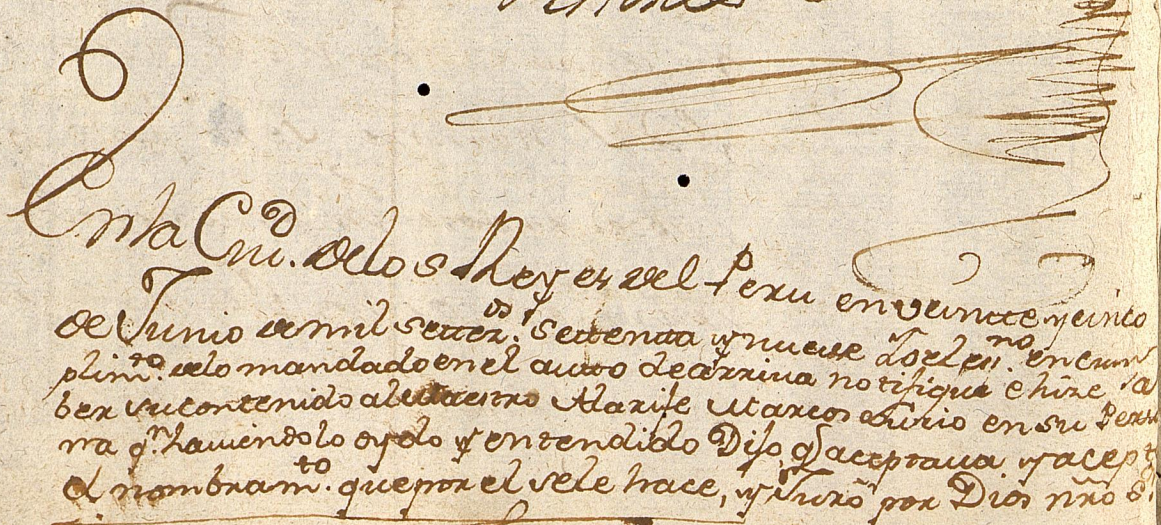 En la Ciud. de los Reyes del Peru en veinte y cinco
de Junio de mil setecs. y settenta y nueve Yo el essno. en cum
plimto. de lo mandado en el autto de arriva notifiqué e hize sa
ber su contenido al Maestro Alarife Marcos Lurio en su Perso
na qn. haviendolo oydo y entendido Dijo, q aceptava y acepto
el nombramto. que por el se le hace, y Juró por Dios nro S.